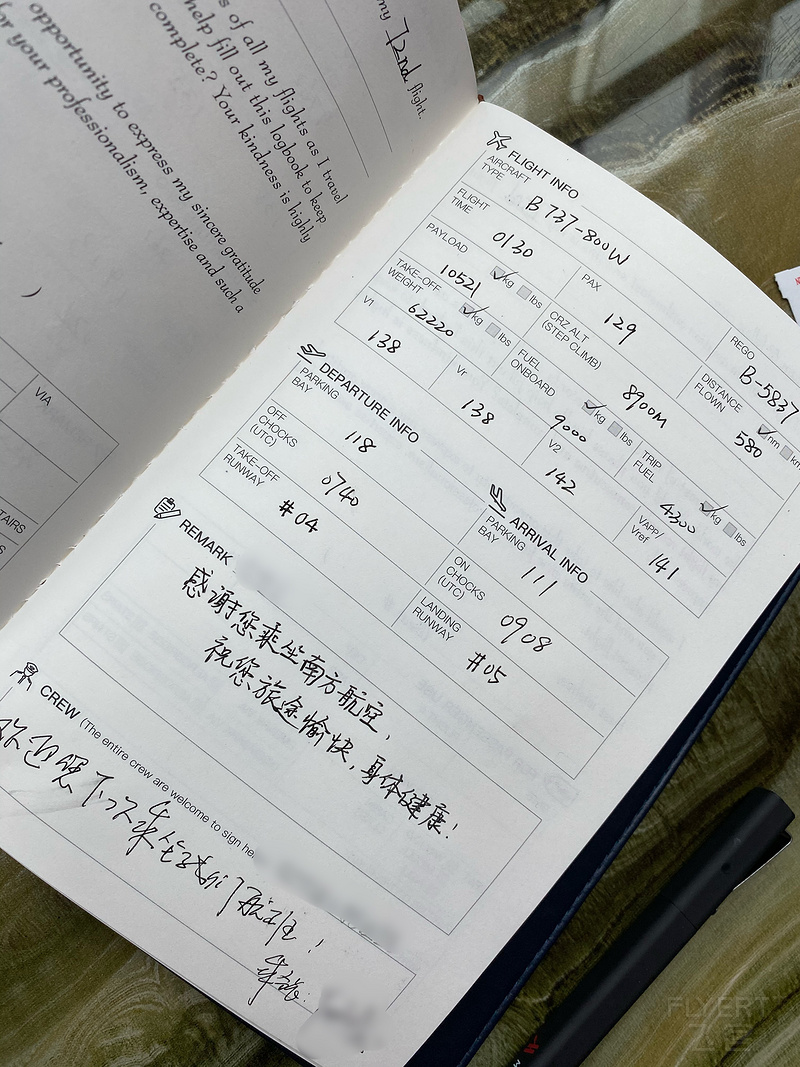 my 72nd flight.
s of all my flights as I travel
help fill out this logbook to keep
complete? Your kindness is highly
opportunity to express my sincere gratitude
for your professionalism, expertise and such a
VIA
TAIRS
S
FLIGHT INFO
AIRCRAFT TYPE B737-800W
REGO B-5837
FLIGHT TIME 0130
PAX 129
DISTANCE FLOWN 580 nm km
PAYLOAD 10521 kg lbs
CRZ ALT (STEP CLIMB) 8900M
TAKE-OFF WEIGHT 62220 kg lbs
FUEL ONBOARD 9000 kg lbs
TRIP FUEL 4300 kg lbs
V1 138
Vr 138
V2 142
VAPP/ Vref 141
DEPARTURE INFO
PARKING BAY 118
OFF CHOCKS (UTC) 0740
TAKE-OFF RUNWAY #04
ARRIVAL INFO
PARKING BAY 111
ON CHOCKS (UTC) 0908
LANDING RUNWAY #05
REMARK
感谢您乘坐南方航空,
祝您旅途愉快,身体健康!
CREW (The entire crew are welcome to sign he
欢迎您下次乘坐我们航班!
FLYERT